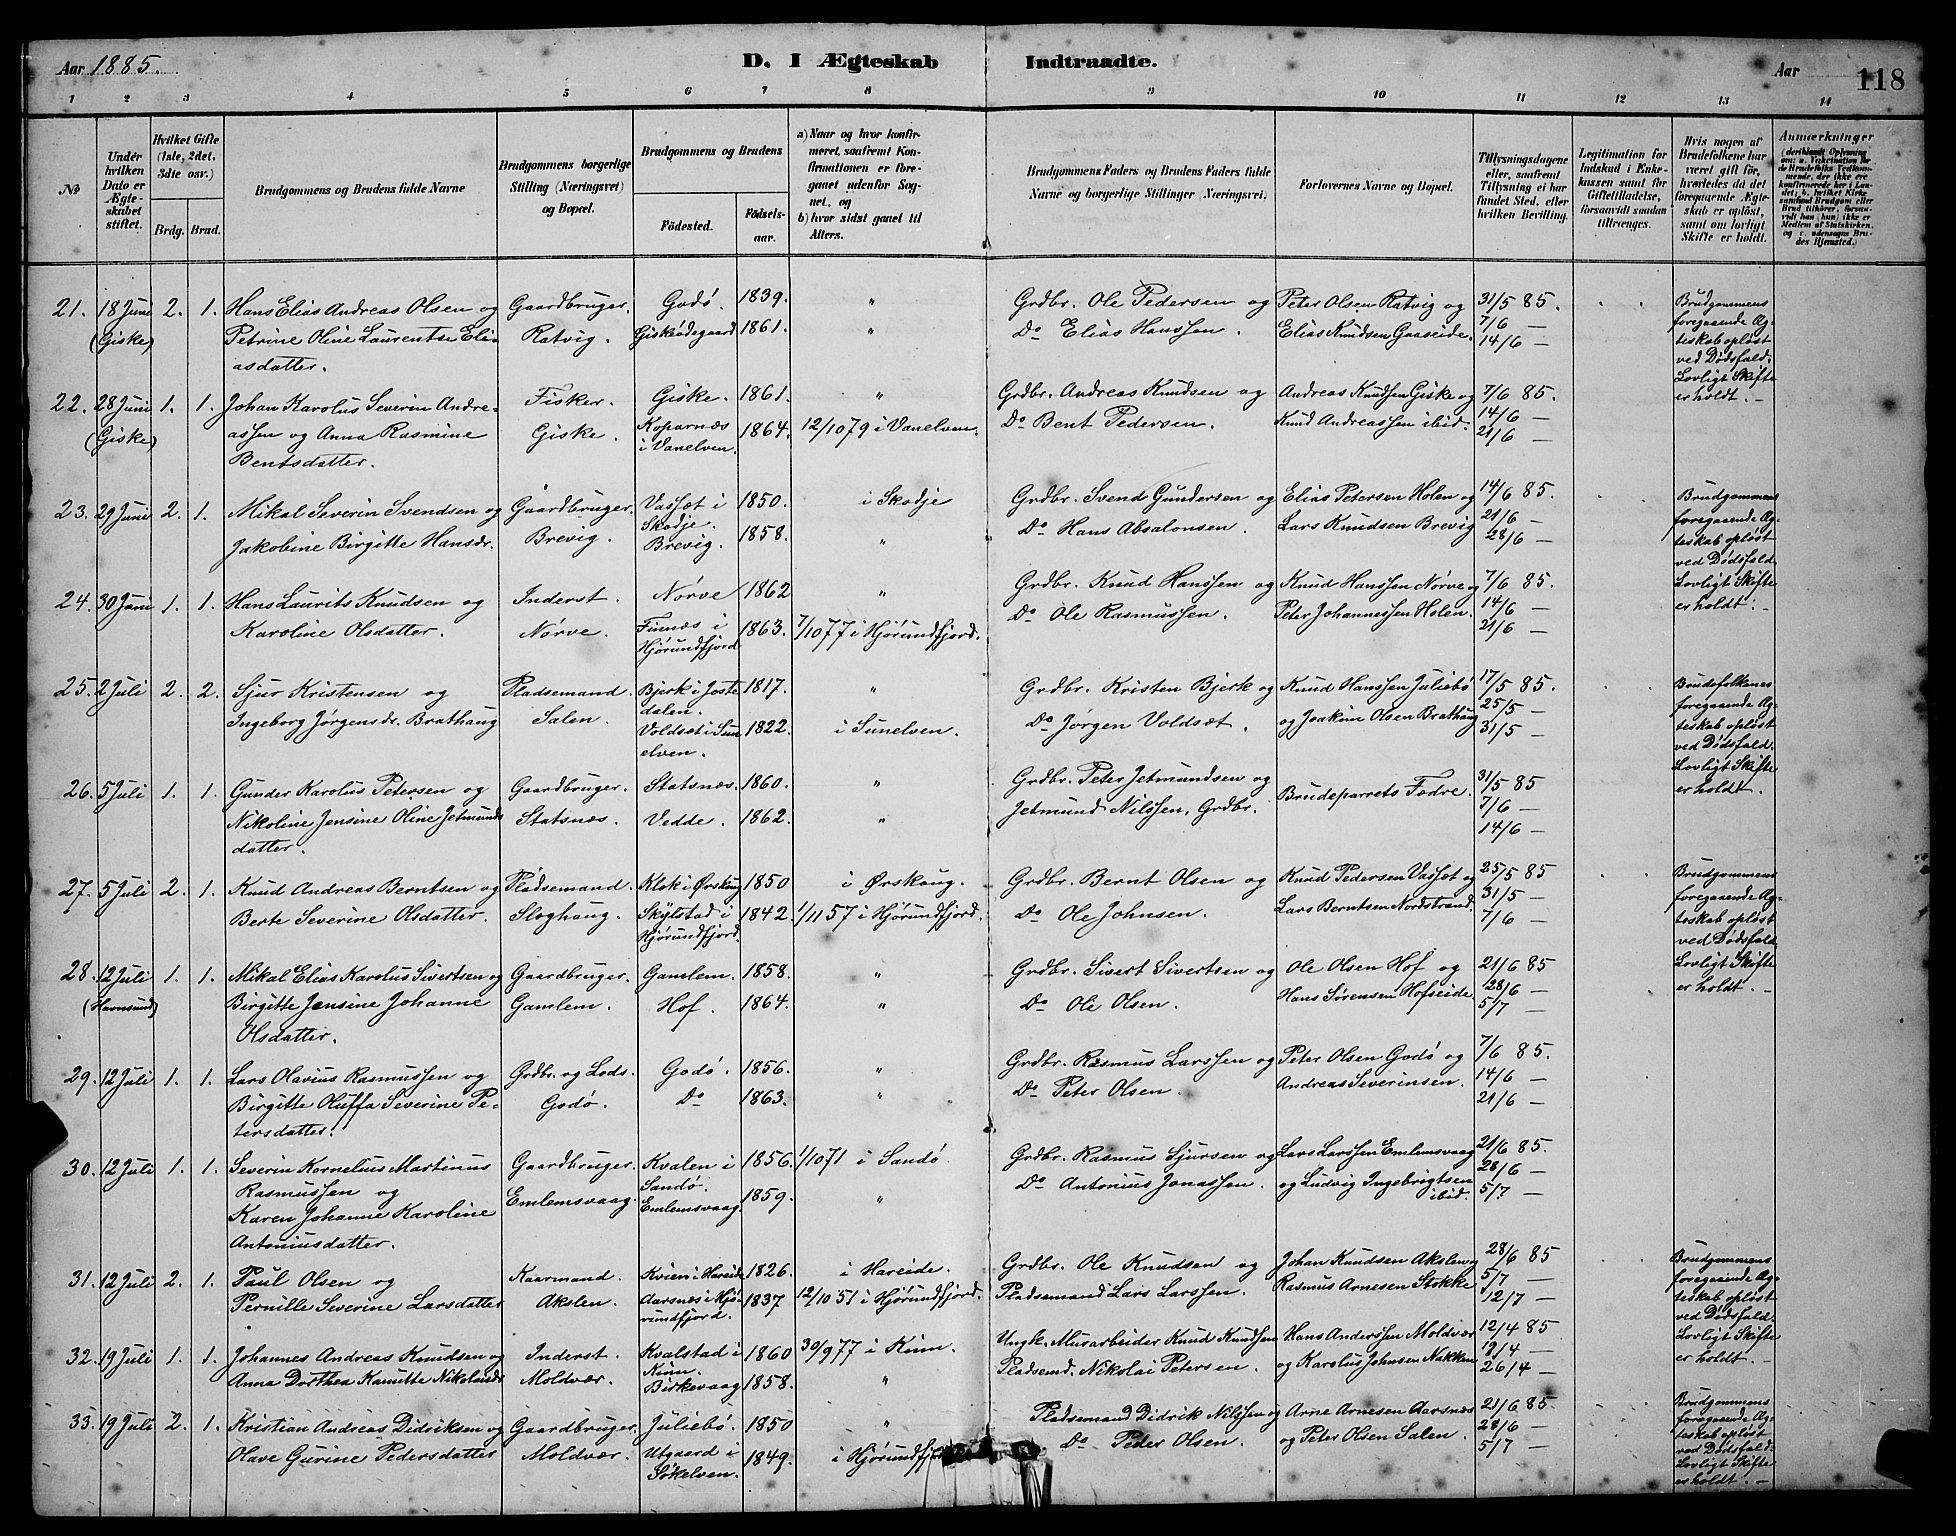 Aar 1885.
D. I Ægteskab Indtraadte.
Aar 118
1 2 3 4 5 6 7 8 9 10 11 12 13 14
No
Under hvilken Dato er Ægteskabet stiftet.
Hvilket Gifte (1ste, 2det, 3die osv.)
Brdg. Brud.
Brudgommens og Brudens fulde Navne
Brudgommens borgerlige Stilling (Næringsvei) og Bopæl.
Brudgommens og Brudens
Fødested.
Fødsels-aar.
a) Naar og hvor konfirmeret, saafremt Konfirmationen er foregaaet udenfor Sognet, og
b) hvor sidst gaaet til Alters.
Brudgommens Faders og Brudens Faders fulde Navne og borgerlige Stillinger (Næringsvei).
Forlovernes Navne og Bopæl.
Tillysningsdagene eller, saafremt Tillysning ei har fundet Sted, efter hvilken Bevilling.
Legitimation for Indskud i Enkekassen samt for Giftetilladelse, forsaavidt saadan tiltrænges.
Hvis nogen af Brudefolkene har været gift før, hvorledes da det foregaaende Ægteskab er opløst, samt om lovligt Skifte er holdt.
Anmærkninger
21. 18 Juni 2. 1. Hans Elias Andreas Olsen og Gaardbruger. Godö. 1839. " Grdbr. Ole Pedersen og Peter Olsen Ratvig og 31/5 85. Brudgommens
(Giske) Petrine Oline Laurentse Eli- Ratvig. Giskødegaard 1861. " Do Elias Hanssen. Elias Knudsen Gaaseide. 7/6 — foregaaende Æg-
asdatter. 14/6 — teskab opløst
ved Dødsfald.
Lovligt Skifte
er holdt. —
22. 28 Juni 1. 1. Johan Karolus Severin Andre- Fisker. Giske. 1861. " Grdbr. Andreas Knudsen og Andreas Knudsen Giske og 7/6 85.
(Giske) assen og Anna Rasmine Giske. Koparnæs 1864. 12/10 79 i Vanelven. Do Bent Pedersen. Knud Andreassen ibid. 14/6 —
Bentsdatter. i Vanelven. 21/6 —
23. 29 Juni 2. 1. Mikal Severin Svendsen og Gaardbruger. Vasset i 1850. i Skodje Grdbr. Svend Gundersen og Elias Petersen Holen og 14/6 85. Brudgommens
Skodje. 21/6 — foregaaende Æg-
Jakobine Birgitte Hansdr. Brevig. Brevig. 1858. " Do Hans Absalonsen. Lars Knudsen Brevig 28/6 — teskab opløst
ved Dødsfald
Lovligt Skifte
er holdt. —
24. 30 Juni 1. 1. Hans Laurits Knudsen og Inderst. Nørve 1862 " Grdbr. Knud Hanssen og Knud Hanssen Nørve og 7/6 85.
Karoline Olsdatter. Nørve. Finnæs i 1863. 7/10 77 i Hjørundfjord. Do Ole Rasmussen. Peter Johannessen Holen. 14/6 —
Hjørundfjord 21/6 —
25. 2 Juli 2. 2. Sjur Kristensen og Pladsemand Bjerk i Joste 1817. " Grdbr. Kristen Bjerk og Knud Hanssen Juliebø 17/5 85. Brudefolkenes
dalen. 25/5 — foregaaende Æg-
Ingeborg Jørgensdr. Brathaug Salen. Voldsæt i Sun 1822. i Sunelven. Do Jørgen Voldsæt. og Joakim Olsen Brathaug 31/5 — teskab opløst
elven. ved Dødsfald.
Lovligt Skifte
er holdt.
26. 5 Juli 1. 1. Gunder Karolus Petersen og Gaardbruger. Statsnæs. 1860. " Grdbr. Peter Jetmundsen og Brudeparrets Fædre. 31/5 85
Nikoline Jensine Oline Jetmunds Statsnæs. Vedde. 1862. " Jetmund Nilssen, Grdbr. 7/6 —
datter. 14/6 —
27. 5 Juli 2. 1. Knud Andreas Berntsen og Pladsemand. Klok i Ørskoug 1850 i Ørskoug. Grdbr. Bernt Olsen og Knud Pedersen Vasset og 25/5 85 Brudgommens
Berte Severine Olsdatter. Sloghaug. Skylstad i 1842 1/11 57 i Hjørundfjord. Do Ole Johnsen. Lars Berntsen Nordstrand. 31/5 — foregaaende Æg-
Hjørundfjord. 7/6 — teskab opløst
ved Dødsfald
Lovligt Skifte
er holdt. —
28. 12 Juli 1. 1. Mikal Elias Karolus Sivertsen og Gaardbruger. Gamlem. 1858. " Grdbr. Sivert Sivertsen og Ole Olsen Hof og 21/6 85
(Havnsund) Birgitte Jensine Johanne Gamlem. Hof. 1864. " Do Ole Olsen. Hans Sørensen Hofseide. 28/6 —
Olsdatter. 5/7 —
29. 12 Juli 1. 1. Lars Olavius Rasmussen og Grdbr. og Lods. Godø. 1856. " Grdbr. Rasmus Larssen og Peter Olsen Godø og 7/6 85.
Birgitte Oluffa Severine Pe- Godø. Do 1863. " Do Peter Olsen. Andreas Severinsen. 14/6 —
tersdatter. 21/6 —
30. 12 Juli 1. 1. Severin Kornelius Martinus Gaardbruger. Kvalen i 1856. 1/10 71 i Sandø Grdbr. Rasmus Sjursen og Lars Larssen Emlemsvaag 21/6 85.
Rasmussen og Emlemsvaag. Sandø. Do Antonius Jonassen. og Ludvig Ingebrigtsen 28/6 —
Karen Johanne Karoline Emlemsvaag 1859. " ibid. 5/7 —
Antoniusdatter.
31. 12 Juli 2. 1. Paul Olsen og Kaarmand. Kvien i Hareide 1826. i Hareide. Grdbr. Ole Knudsen og Johan Knudsen Akslen og 28/6 85 Brudgommens
Pernille Severine Larsdatter Akslen. Aarsnes i Hjø- 1837 12/10 51 i Hjørundfjord. Pladsemand Lars Larssen. Rasmus Arnesen Stokke 5/7 — foregaaende Æg-
rundfjord. 12/7 — teskab opløst
ved Dødsfald.
Lovligt Skifte
er holdt. —
32. 19 Juli 1. 1. Johannes Andreas Knudsen og Inderst. Kvalstad i 1860 30/9 77 i Kinn. Ungk. Murarbeider Knud Knudsen Hans Anderssen Moldvær 12/4 85
Kinn. 19/4 —
Anna Dorthea Kamitte Nikolaisdr Moldvær. Birkevaag 1858. " Pladsemd. Nikolai Petersen. og Karolus Johnsen Nakken 26/4 —
33. 19 Juli 2. 1. Kristian Andreas Didriksen og Gaardbruger. Juliebø. 1850 " Pladsemand Didrik Nilssen og Arne Arnesen Aarsnæs 21/6 85 Brudgommens
Olave Gurine Pedersdatter Moldvær. Utgaard i 1849. i Hjørundfjord Do Peder Olsen. og Peter Olsen Salen. 28/6 — foregaaende Æg-
Søkelven. 5/7 — teskab opløst
ved Dødsfald.
Lovligt Skifte
er holdt. —